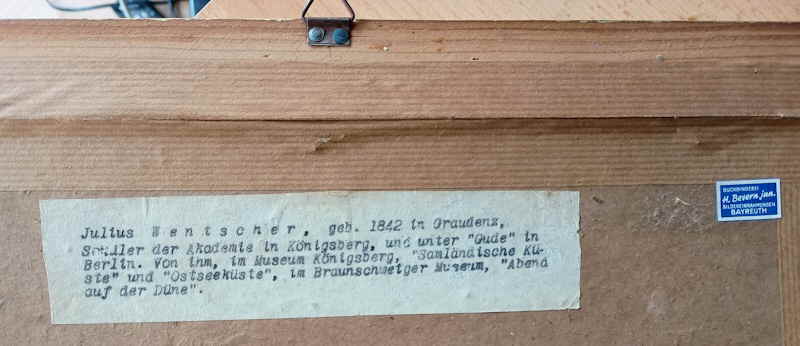 Julius W e n t s c h e r , geb. 1842 in Graudenz,
Schüler der Akademie in Königsberg, und unter "Gude" in
Berlin. Von ihm, im Museum Königsberg, "Samländische Kü-
ste" und "Ostseeküste", im Braunschweiger Museum, "Abend
auf der Düne".
BUCHBINDEREI
H. Bevern jun.
BILDEREINRAHMUNGEN
BAYREUTH